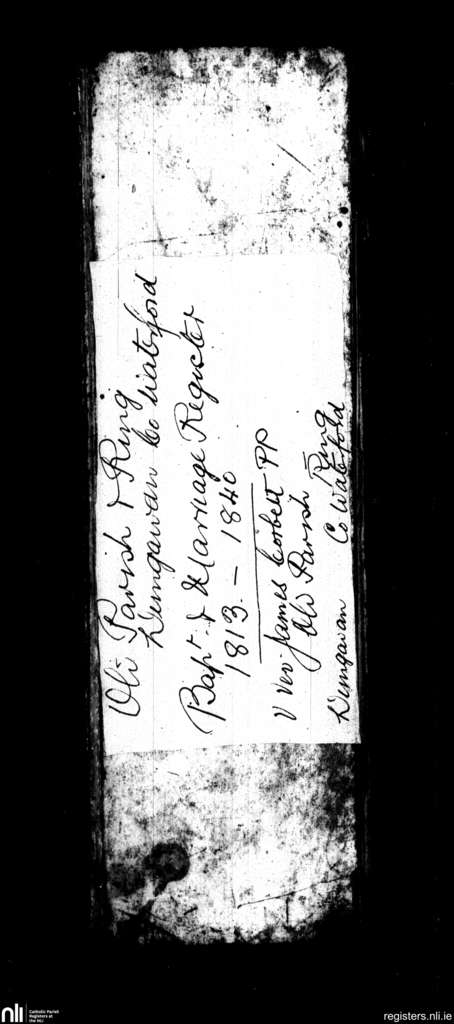 Old Parish & Ring
Dungarvan Co Waterford
Bapt. & Marriage Register
1813 – 1840
V Rev. James Corbett PP
Old Parish – Ring
Dungarvan Co Waterford
nli
Catholic Parish
Registers at
the NLI
registers.nli.ie